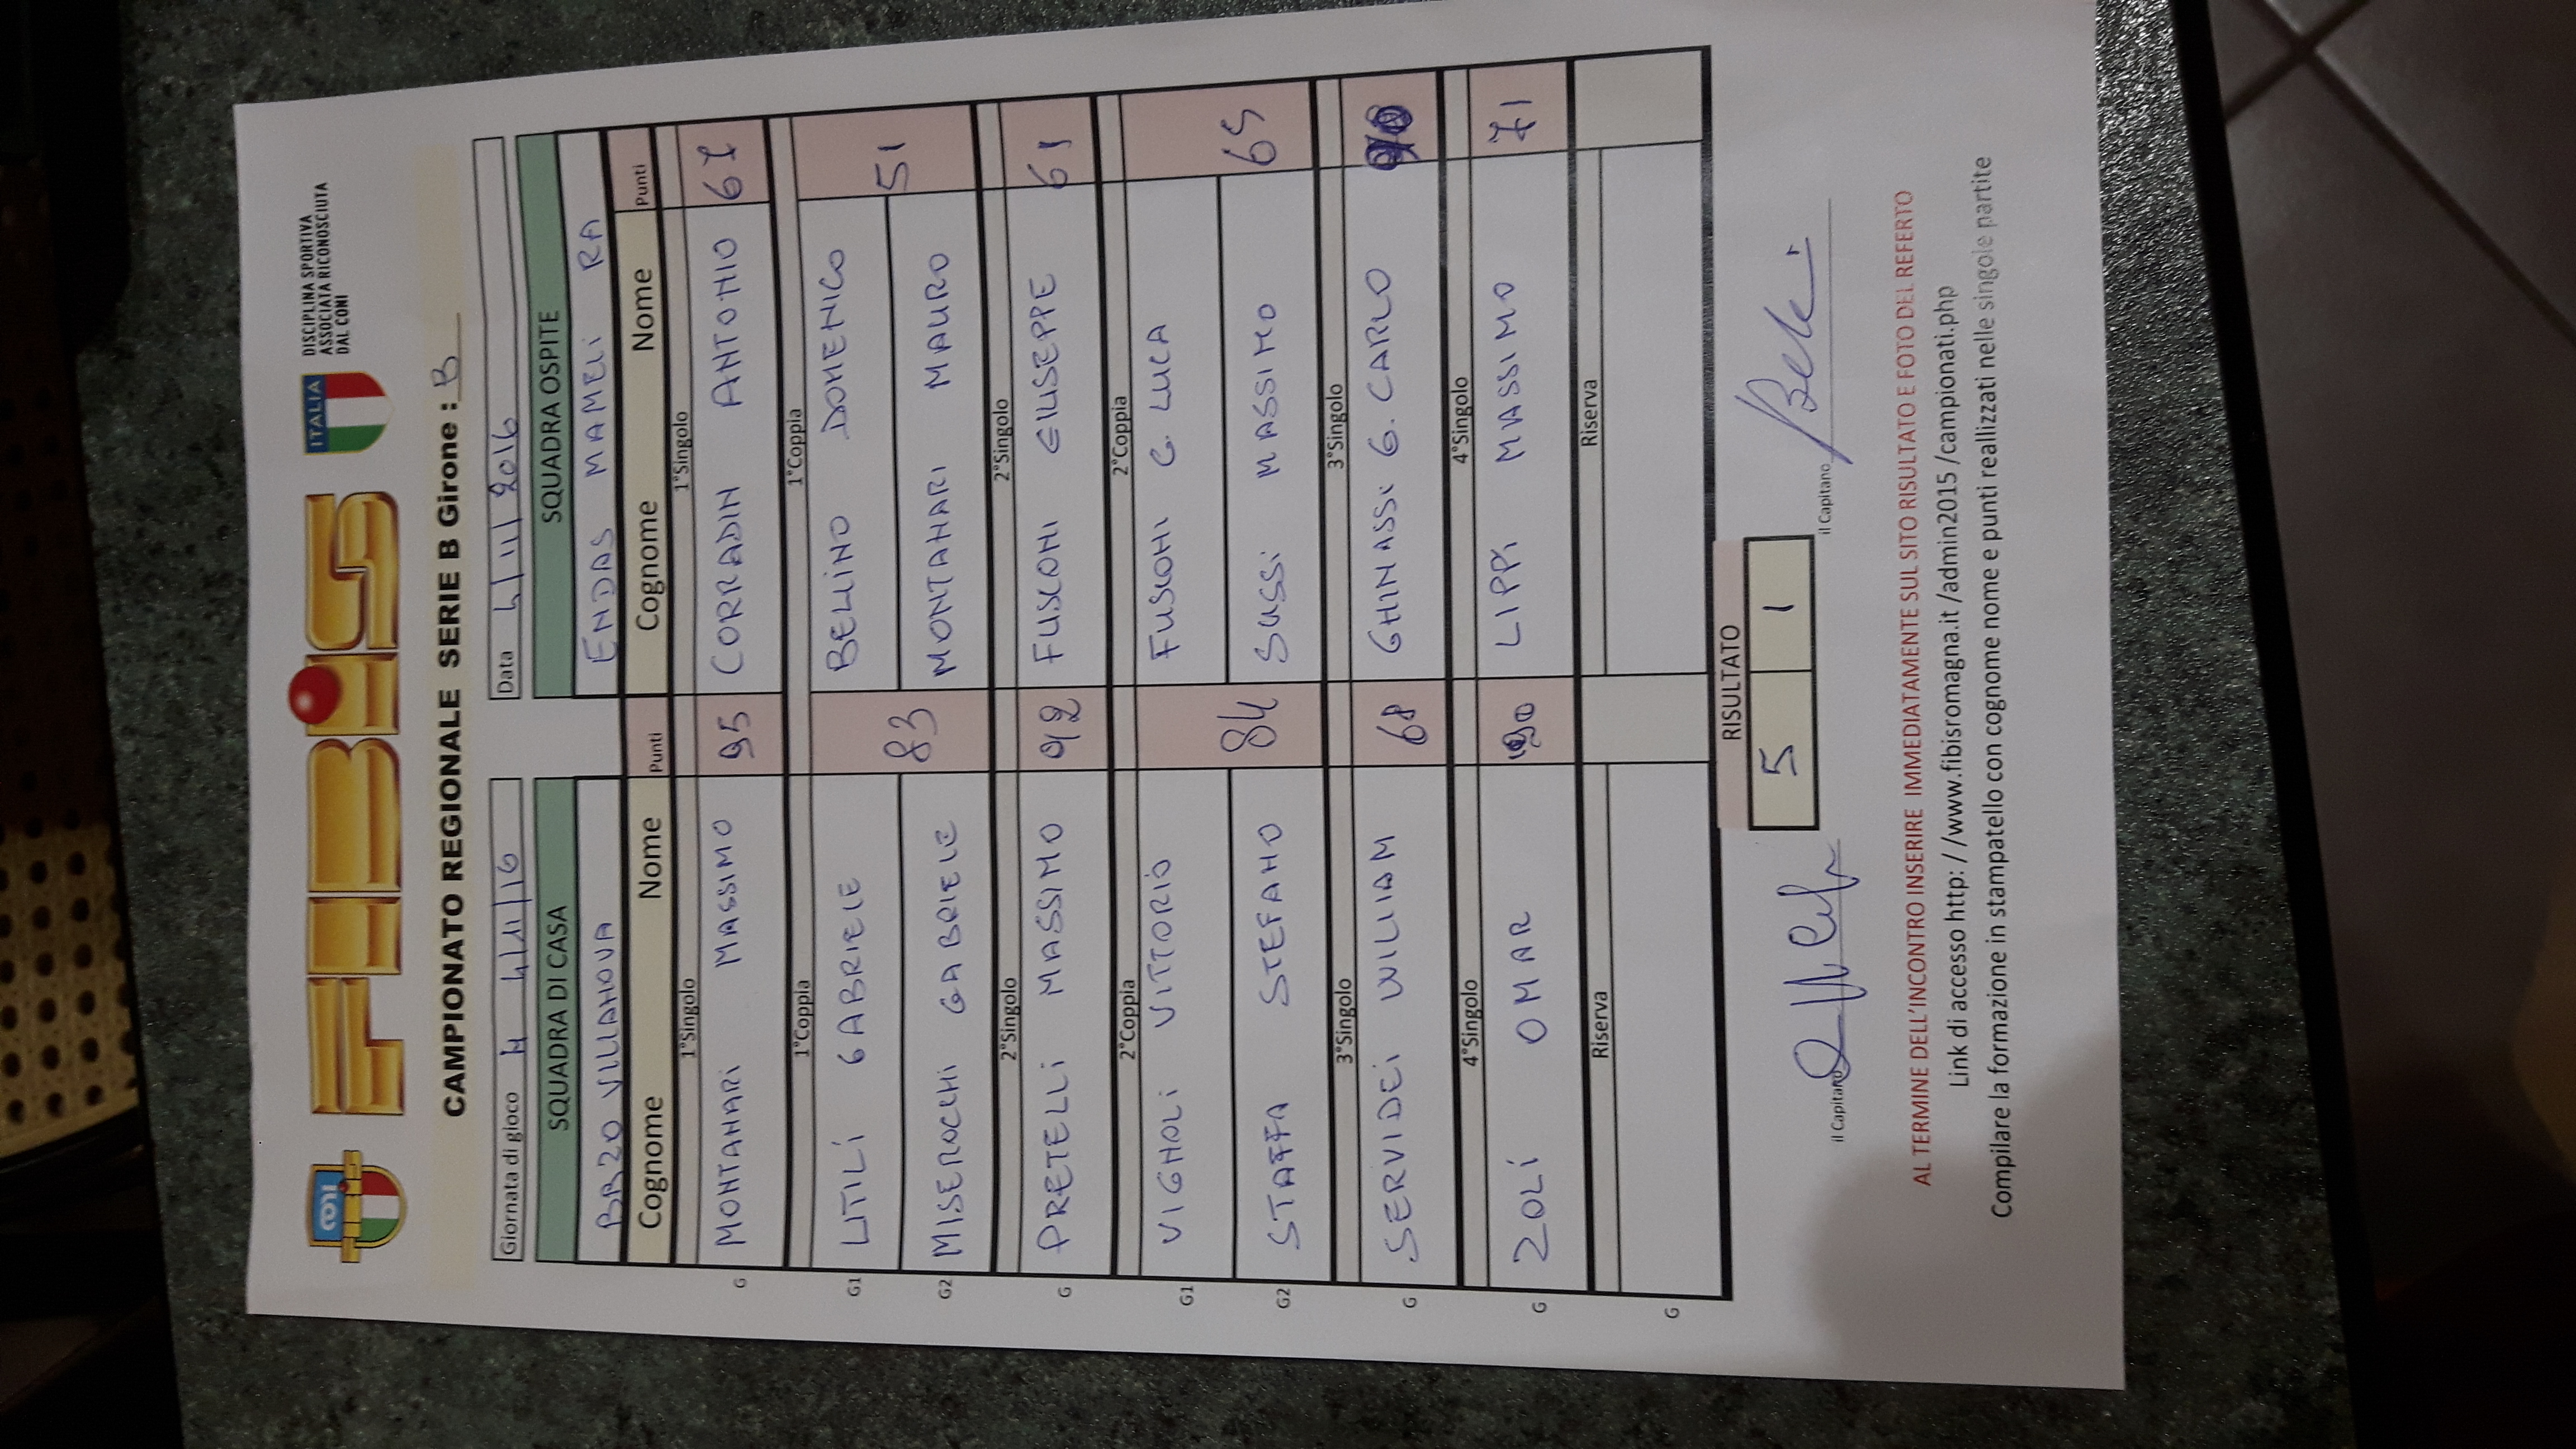 FIBiS
ITALIA
DISCIPLINA SPORTIVA
ASSOCIATA RICONOSCIUTA
DAL CONI
CAMPIONATO REGIONALE SERIE B Girone : B
Giornata di gioco 4/11/16 Data 4/11/2016
SQUADRA DI CASA SQUADRA OSPITE
VILLANOVA ENDAS MAMELI RA
Cognome Nome Punti Cognome Nome Punti
1°Singolo 1°Singolo
G MONTANARI MASSIMO 95 CORRADIN ANTONIO 67
1°Coppia 1°Coppia
G1 UTILI GABRIELE 83 BELLINO DOMENICO 51
G2 MISEROCCHI GABRIELE MONTANARI MAURO
2°Singolo 2°Singolo
G PRETELLI MASSIMO 92 FUSCONI GIUSEPPE 61
2°Coppia 2°Coppia
G1 VIGNOLI VITTORIO 84 FUSCONI G. LUCA 65
G2 STAFFA STEFANO SUSSI MASSIMO
3°Singolo 3°Singolo
G SERVIDEI WILLIAM 68 GHINASSI G. CARLO
4°Singolo 4°Singolo
G ZOLI OMAR LIPPI MASSIMO 71
Riserva Riserva
G
RISULTATO
5 1
il Capitano il Capitano
AL TERMINE DELL'INCONTRO INSERIRE IMMEDIATAMENTE SUL SITO RISULTATO E FOTO DEL REFERTO
Link di accesso http: //www.fibisromagna.it /admin2015 /campionati.php
Compilare la formazione in stampatello con cognome nome e punti reallizzati nelle singole partite